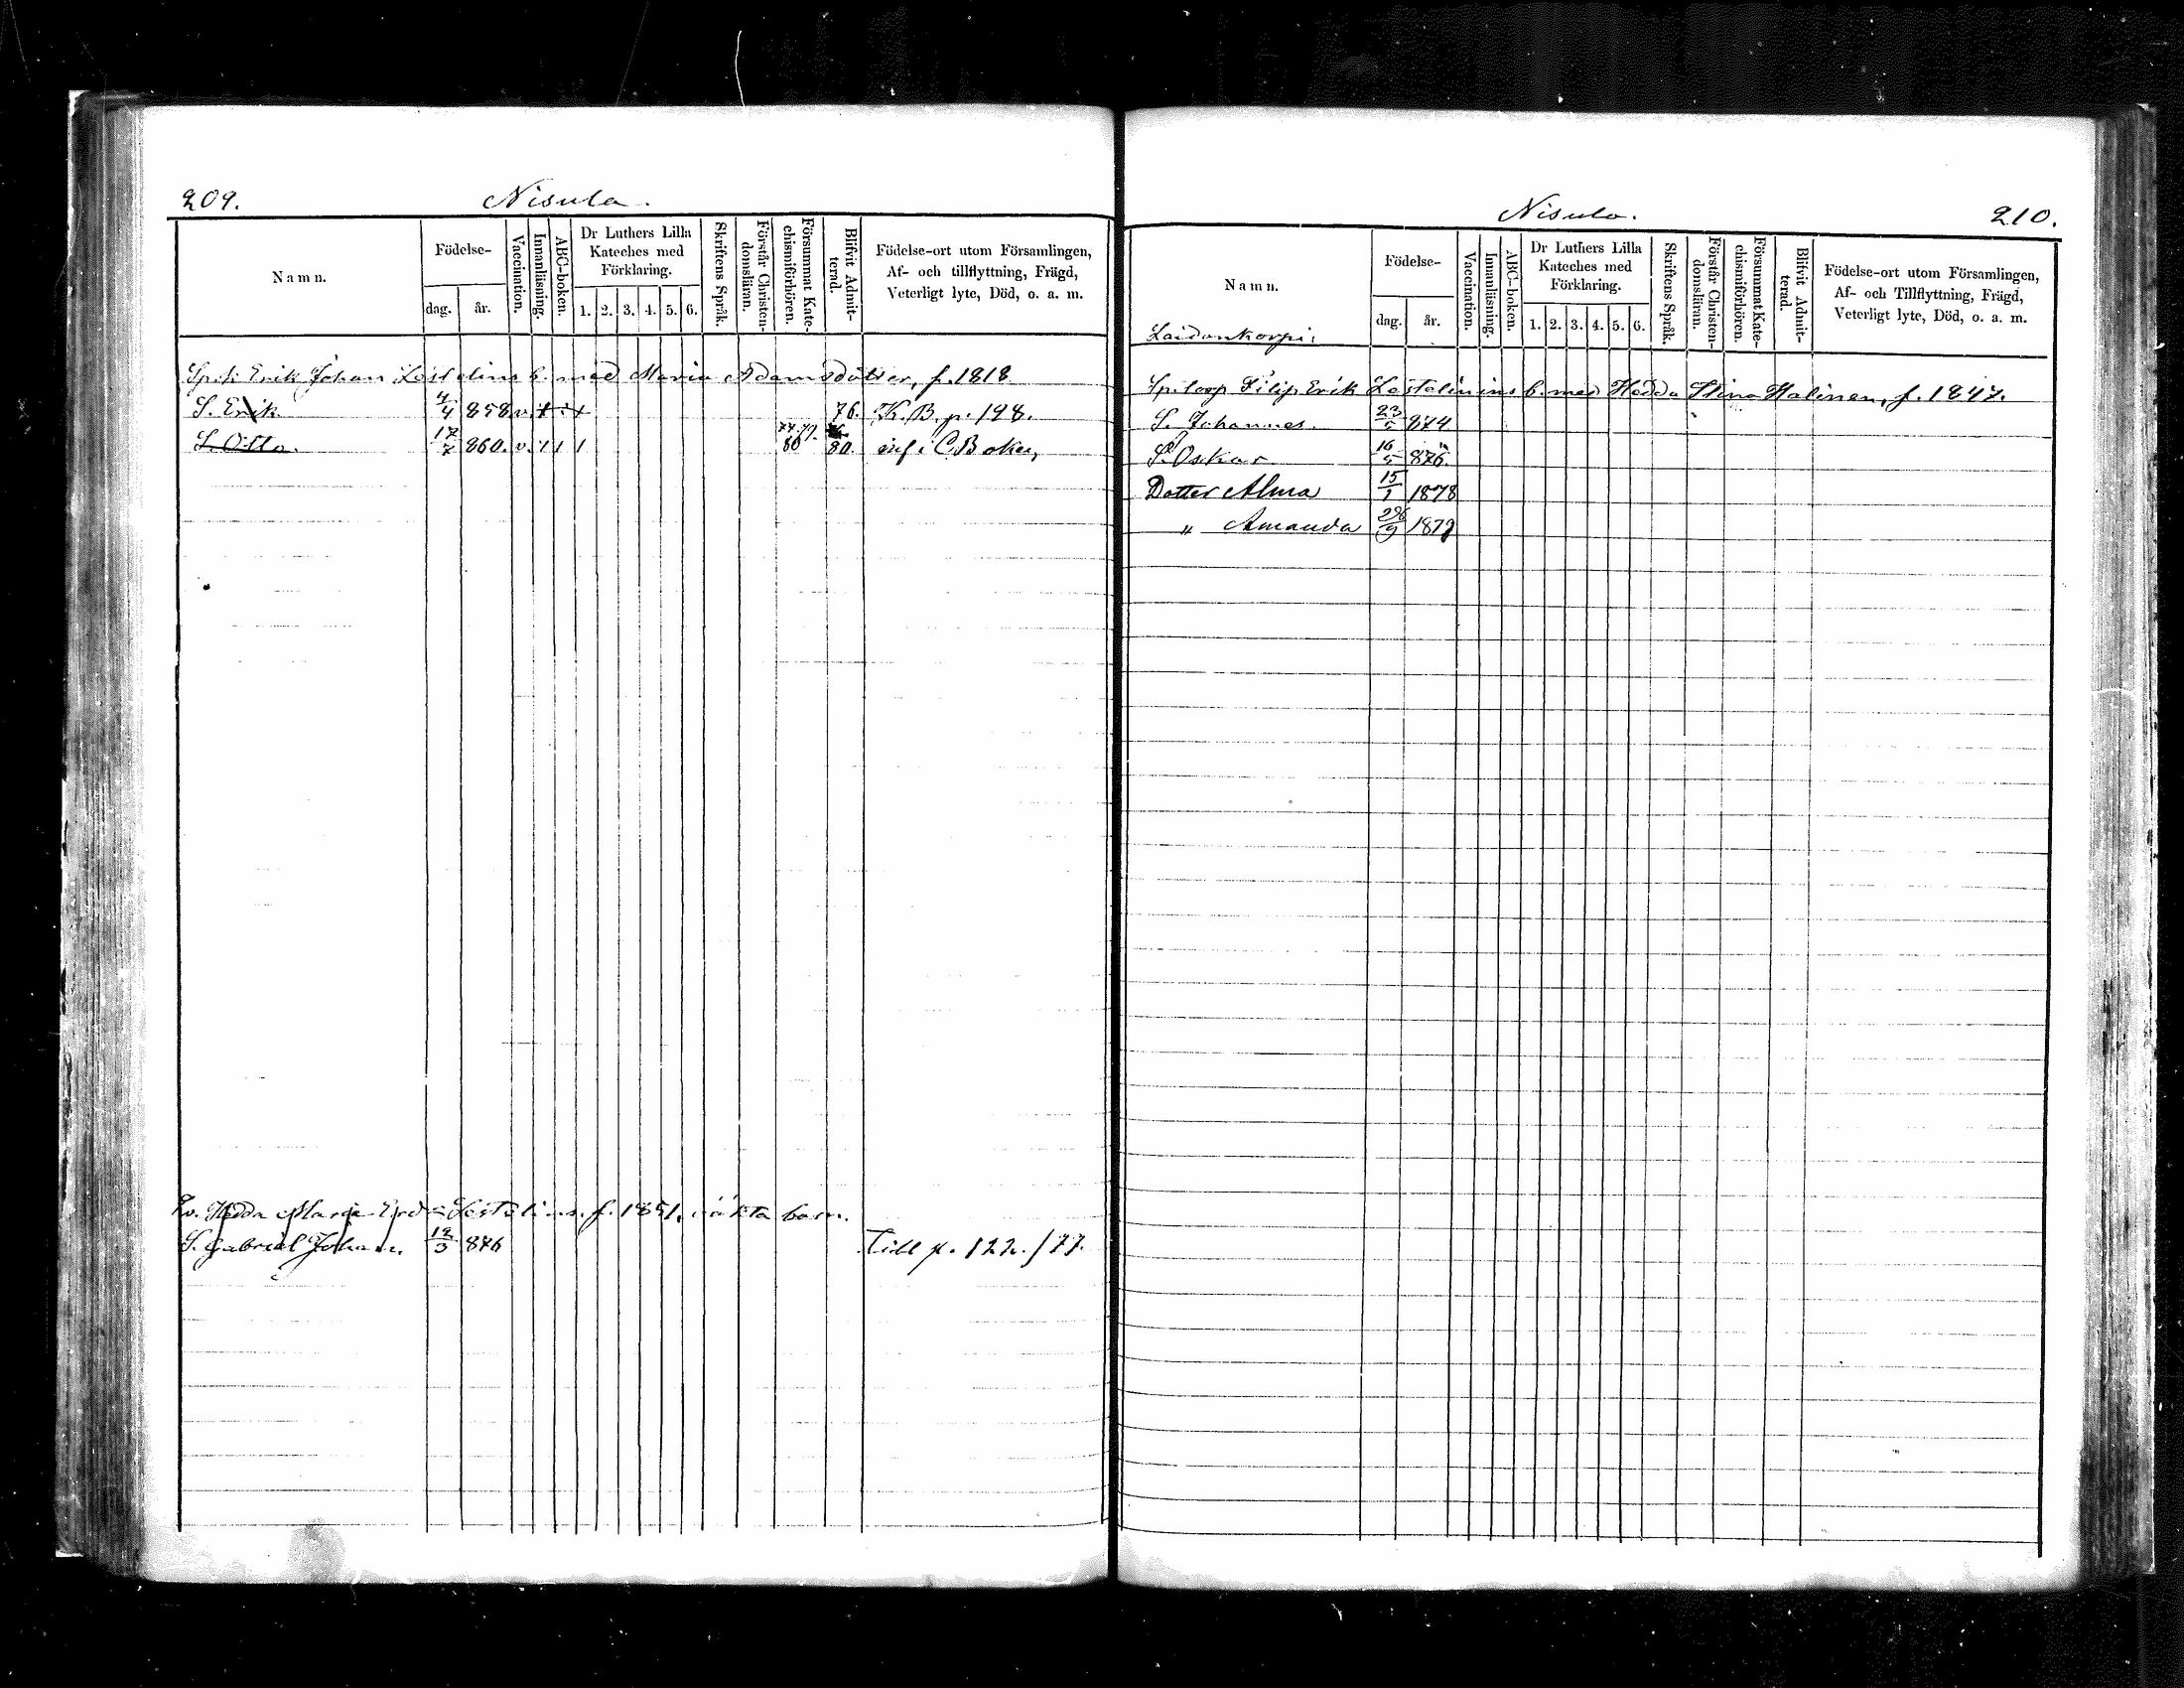 209.
Nisula.
Namn.
Födelse-
dag.
år.
Vaccination.
Innanläsning.
ABC-boken.
Dr Luthers Lilla
Kateches med
Förklaring.
1. 2. 3. 4. 5. 6.
Skriftens Språk.
Förstår Christen-
domsläran.
Försummat Kate-
chismiförhören.
Blifvit Admit-
terad.
Födelse-ort utom Församlingen,
Af- och tillflyttning, Frägd,
Veterligt lyte, Död, o. a. m.
Erik Johan b. med Maria Adamsdotter, f. 1818
S. Erik 4/4 858 v. 76. K. B. p. 198.
S. Otto. 17/7 860. v. 77.79. 80 80. inf i C. Boken,
Hedda Maria f. 1851, oäkta barn.
S. Gabriel Johan. 12/3 876 Till p. 122. /77.
Nisula.
210.
Namn.
Födelse-
dag.
år.
Vaccination.
Innanläsning.
ABC-boken.
Dr Luthers Lilla
Kateches med
Förklaring.
1. 2. 3. 4. 5. 6.
Skriftens Språk.
Förstår Christen-
domsläran.
Försummat Kate-
chismiförhören.
Blifvit Admit-
terad.
Födelse-ort utom Församlingen,
Af- och Tillflyttning, Frägd,
Veterligt lyte, Död, o. a. m.
Laidankorpi:
Filip Erik b. med Hedda Stina Halinen, f. 1847.
S. Johannes. 23/5 874
S. Oskar 16/5 876.
Dotter Alma 15/1 1878
" Amanda 1879